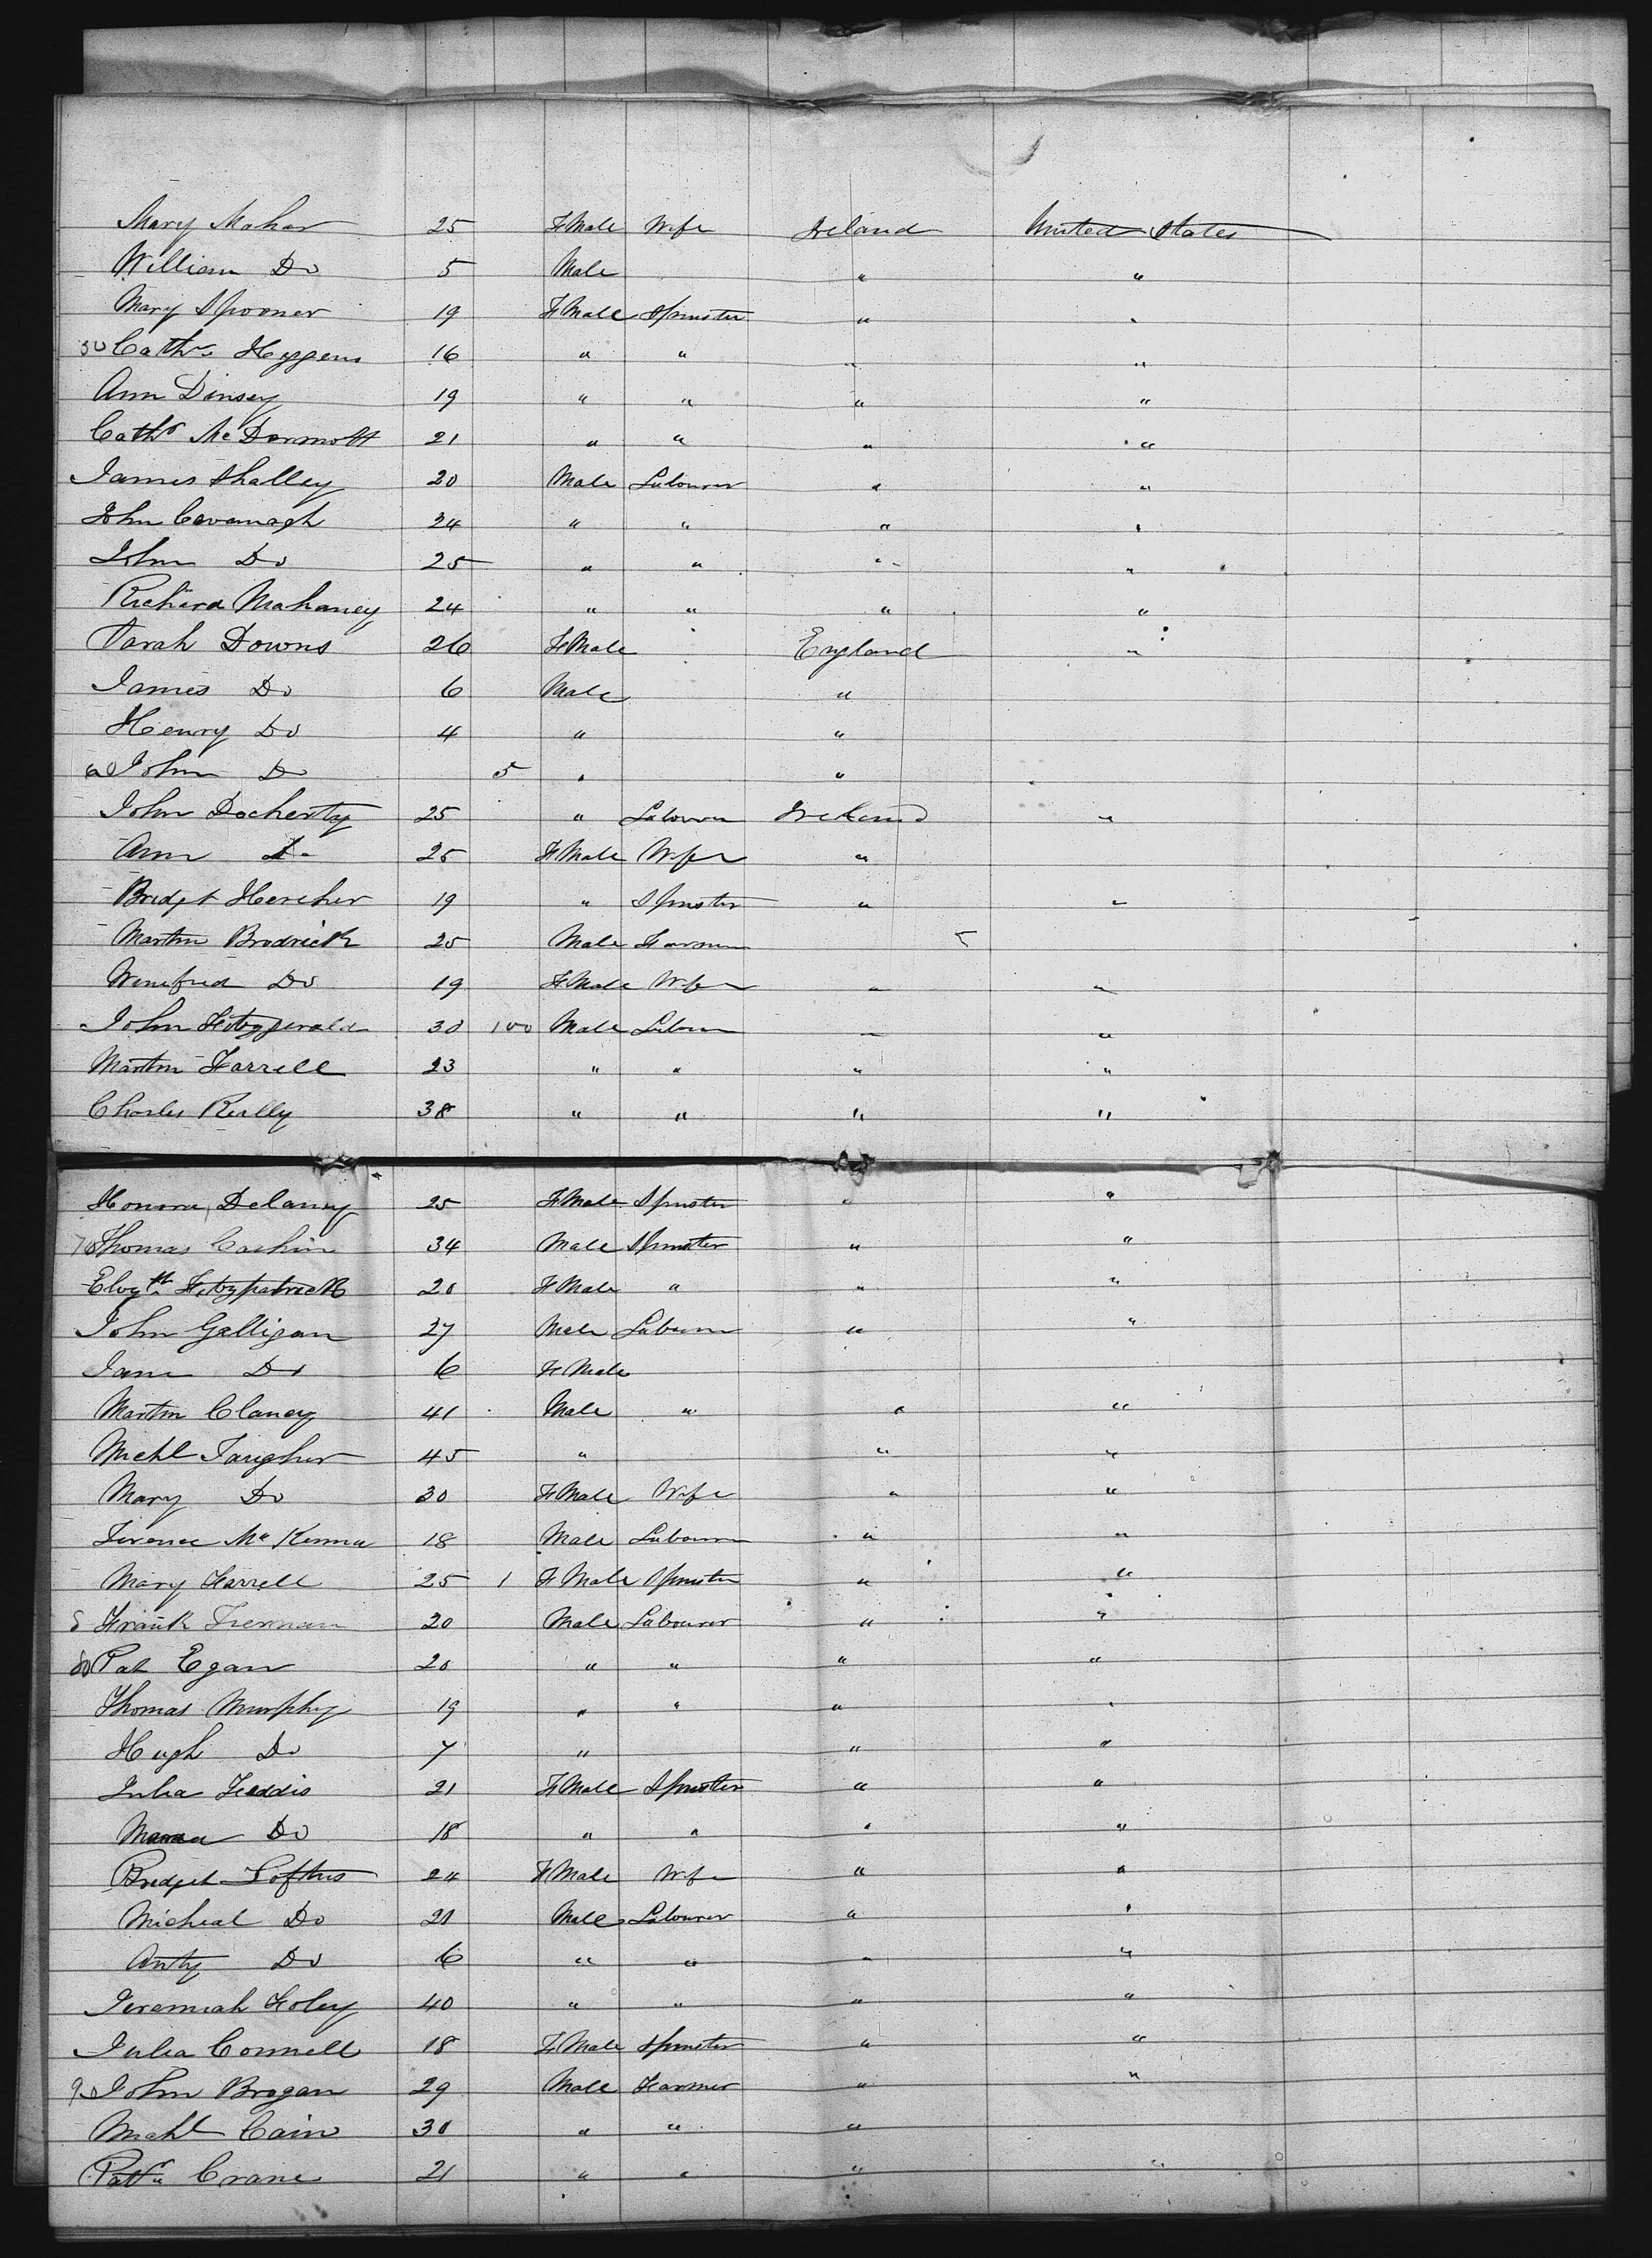 Mary Mahar 25 FMale Wife Ireland United States
William Do 5 Male " "
Mary Spooner 19 FMale Spinster " "
50 Cathr. Hyggens 16 " " " "
Ann Dinsey 19 " " " "
Cathr McDermott 21 " " " "
James Shalley 20 Male Labourer " "
John Cavanagh 24 " " " "
John Do 25 " " " "
Richard Mahaney 24 " " " "
Sarah Downs 26 FMale England "
James Do 6 Male "
Henry Do 4 " "
60 John Do 5 " "
John Docherty 25 " Labourer Ireland "
Ann Do 25 FMale Wife "
Bridget Hercher 19 " Spinster " "
Martin Brodrick 25 Male Farmer "
Winefred Do 19 FMale Wife " "
John Fitzgerald 30 100 Male Labourer " "
Martin Farrell 23 " " " "
Charles Reilly 38 " " " "
Honora Delaney 25 FMale Spinster " "
70 Thomas Cashin 34 Male Spinster " "
Elizth. Fitzpatrick 20 FMale " " "
John Galligan 27 Male Labourer " "
Jane Do 6 FMale
Martin Clancy 41 Male " " "
Michl 45 " " "
Mary Do 30 FMale Wife " "
Terence McKenna 18 Male Labourer " "
Mary Farrell 25 1 FMale Spinster " "
Frank Tiernan 20 Male Labourer " "
80 Pat Egan 20 " " " "
Thomas Murphy 19 " " " "
Hugh Do 7 " " "
Julia Feddis 21 FMale Spinster " "
Do 18 " " " "
Bridget Loftus 24 FMale Wife " "
Micheal Do 21 Male Labourer " "
Anty Do 6 " " " "
Jeremiah Foley 40 " " " "
Julia Connell 18 FMale Spinster " "
90 John Brogan 29 Male Farmer " "
Michl Cain 30 " " "
Patk Crane 21 " " " "